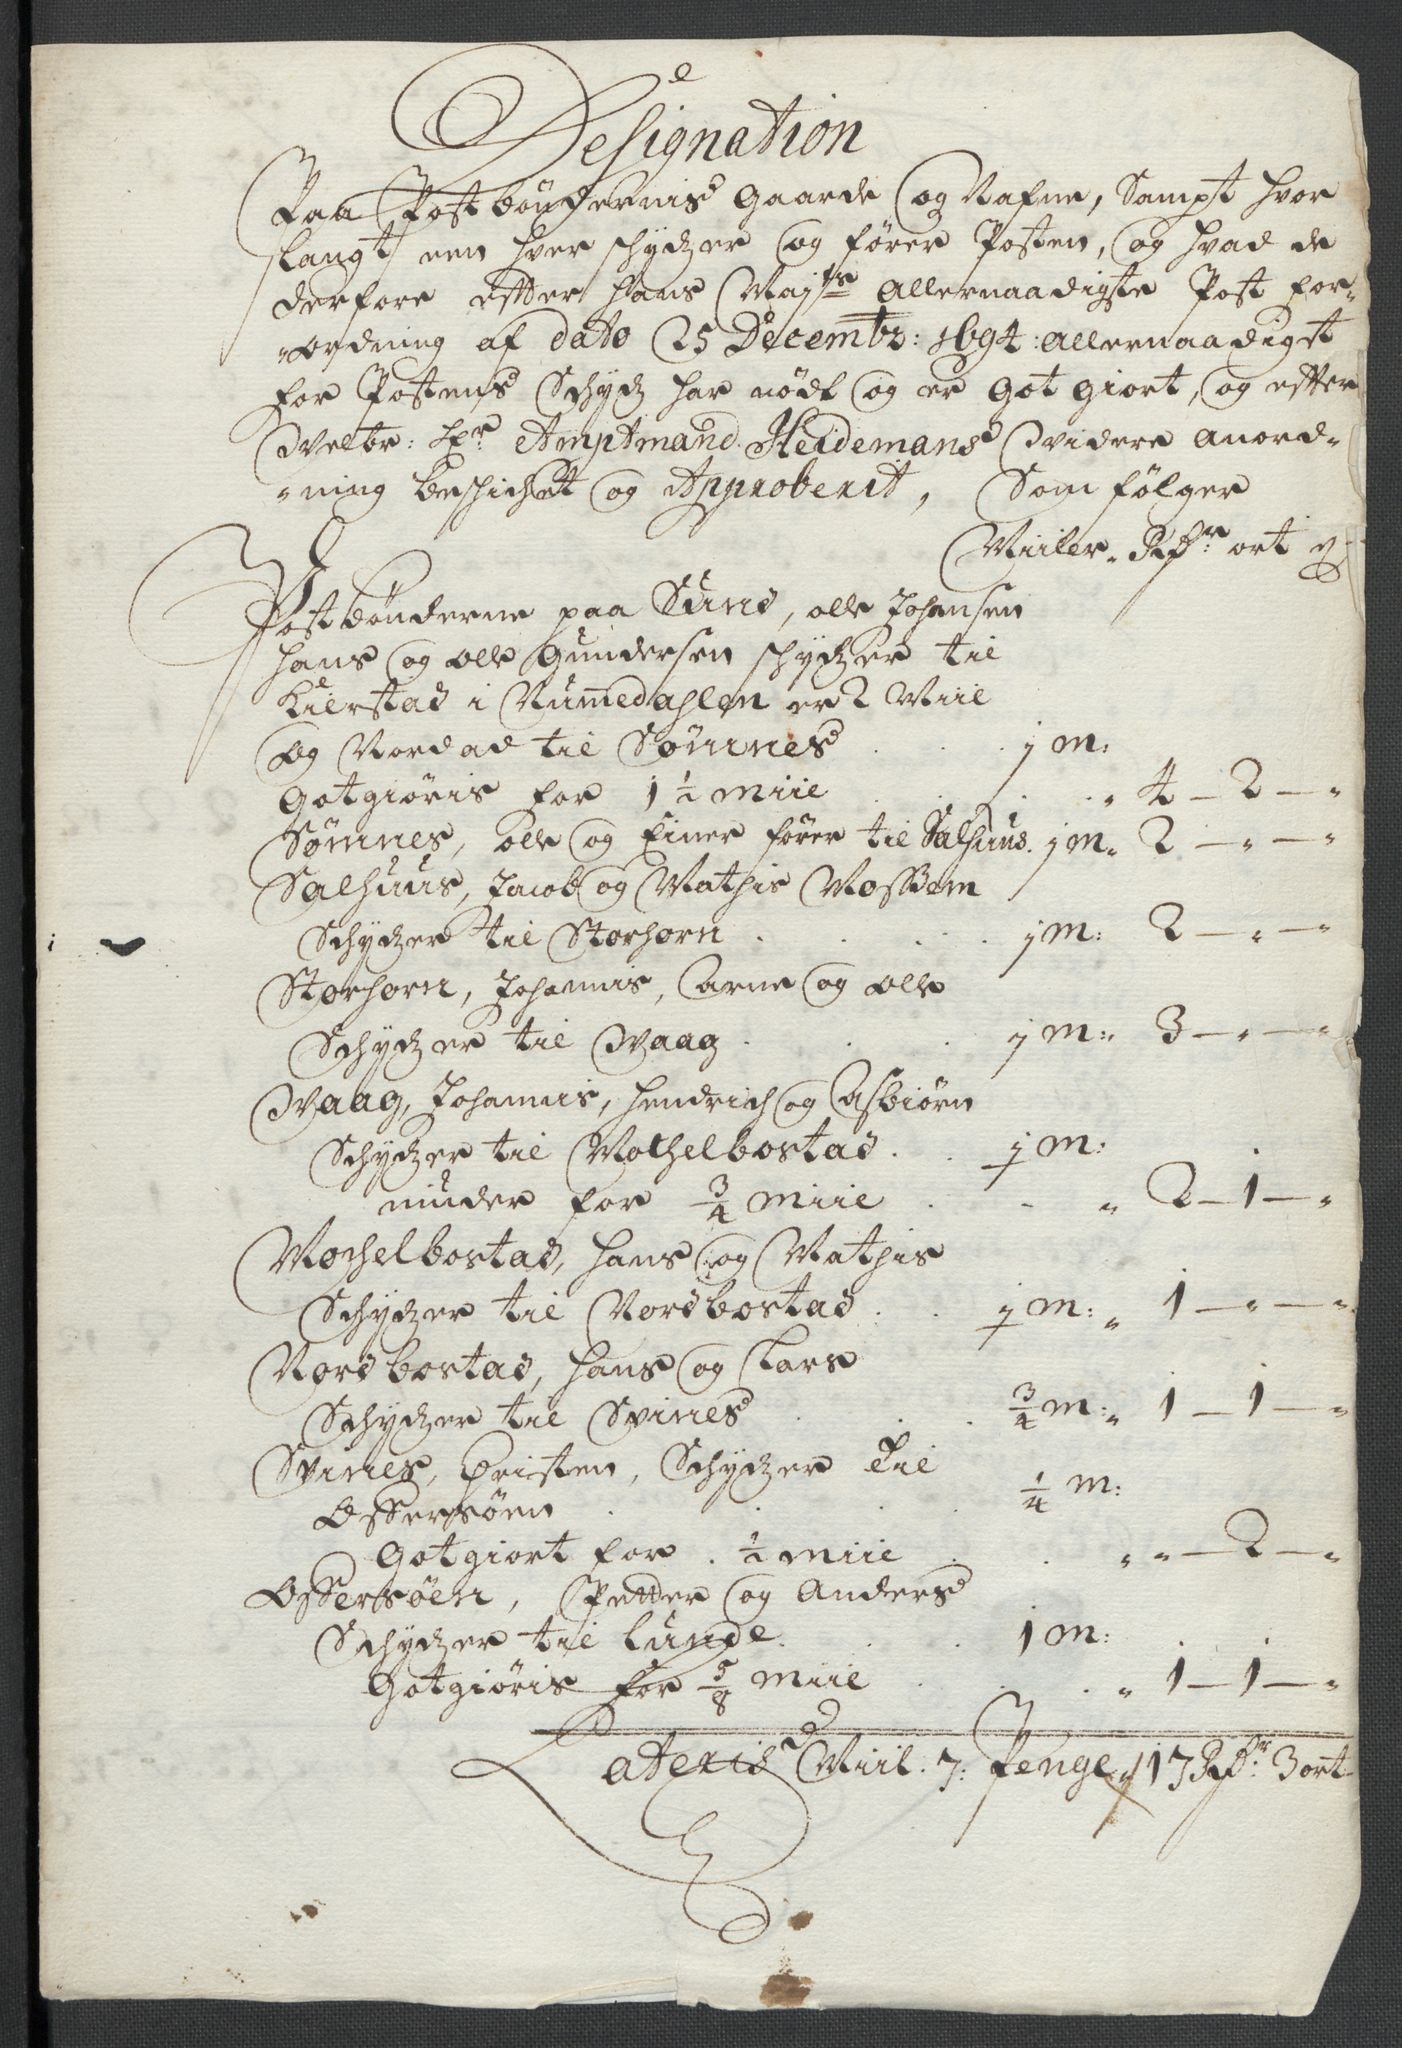 Designation
Paa Postbøndernis Gaarde og Nafne, Sampt hvor
langt een hver schydzer og fører Posten, og hvad de
derfore efter Hans Maj^ts Allernaadigste Post for-
-ordning af dato 25 Decembr: 1694: allernaadigst
for Postens Schydz har nødt og er Got giort, og efter
Welbr: Hr Amptmand Heidemans Widere anord-
-ning beschichet og Approberit, Som følger
Miiler. Rdr ort ß
Postbønderne paa Sund, olle Johansen
Hans og olle Gundersen schydzer til
Kierstad i Numedahlen er 2 Miil
Og Nordad til Sømnes . . . j m:
Gotgiøris for 1½ miil . . . „ 4 – 2 – „
Sømnes, olle og Einer fører til Salhuus. j m „ 2 – „ – „
Salhuus, Jacob og Mathis Mossem
Schydzer til Storhorn . . . . j m: 2 – „ – „
Storhorn, Johannis, Arne og olle
Schydzer til Waag . . . j m: 3 – „ – „
Waag, Johannis, Hendrich og Asbiørn
Schydzer til Mochelbostad . . ½ m:
minder for ¾ miil . . „ 2 – 1 – „
Mochelbostad, Hans og Mathis
Schydzer til Nordbostad . . ½ m: „ 1 – „ – „
Nordbostad, Hans og Lars
Schydzer til Svines . . . ¾ m: „ 1 – 1 – „
Svines, Christen, Schydzer til
Offersøen . . . . ¼ m:
Gotgiort for . ½ miil . . „ „ – 2 – „
Offersøen, Petter og Anders
Schydzer til Lunde . . . 1 m:
Gotgiøris for ⅝ miil . . . „ 1 – 1 – „
Lateris Miil: 7: Penge 17 Rdr: 3 ort